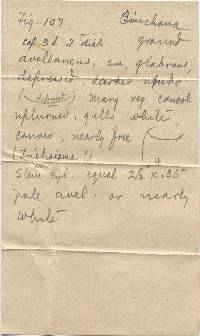 Fig. 107
ground
cap 3 d. thick
avellaneus, sm, glabrous,
depressed, darker umbo
( ) marg reg. concol
upturned, gills white,
connos, nearly free
(Tricholoma ?)
4
Stem cyl. equal 2½ x .35
pale avel. or nearly
white